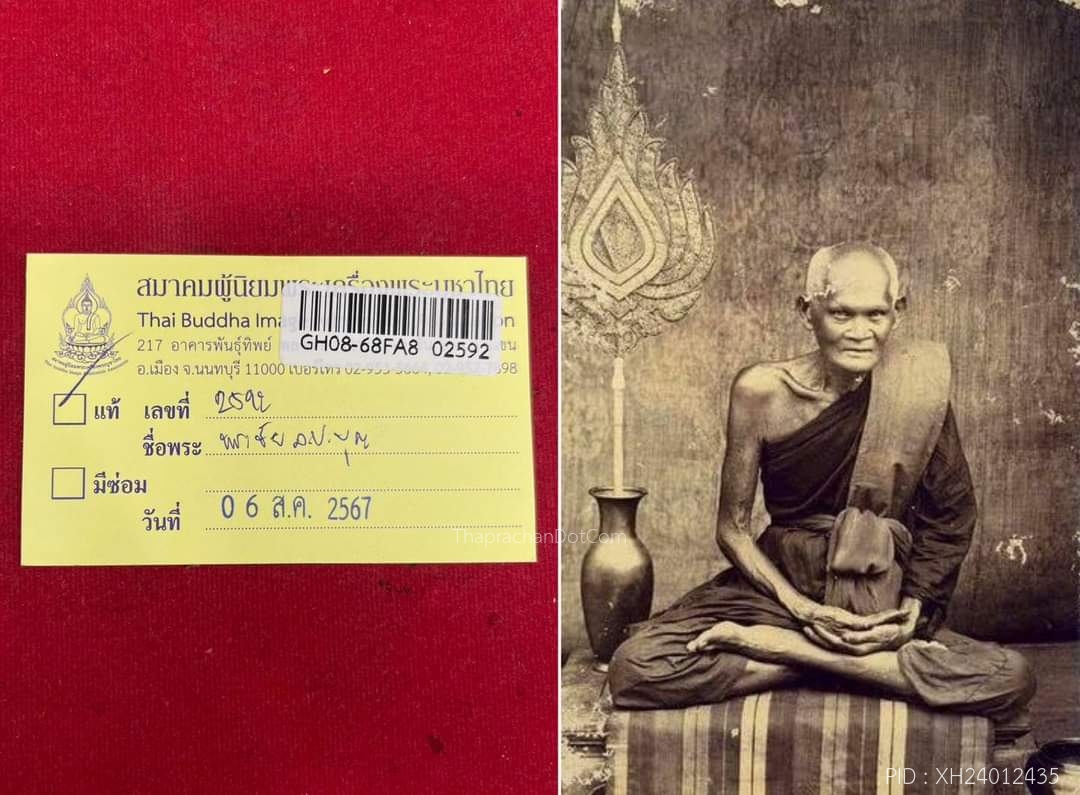 สมาคมผู้นิยมพระเครื่องพระบูชาไทย
Thai Buddha Imag on
GH08-68FA8 02592
217 อาคารพันธุ์ทิพย์
อ.เมือง จ.นนทบุรี 11000 เบอร์โทร 02-953-
แท้ เลขที่ 2592
ชื่อพระ
มีซ่อม
วันที่ 06 ส.ค. 2567
ThaprachanDotCom
PID : XH24012435